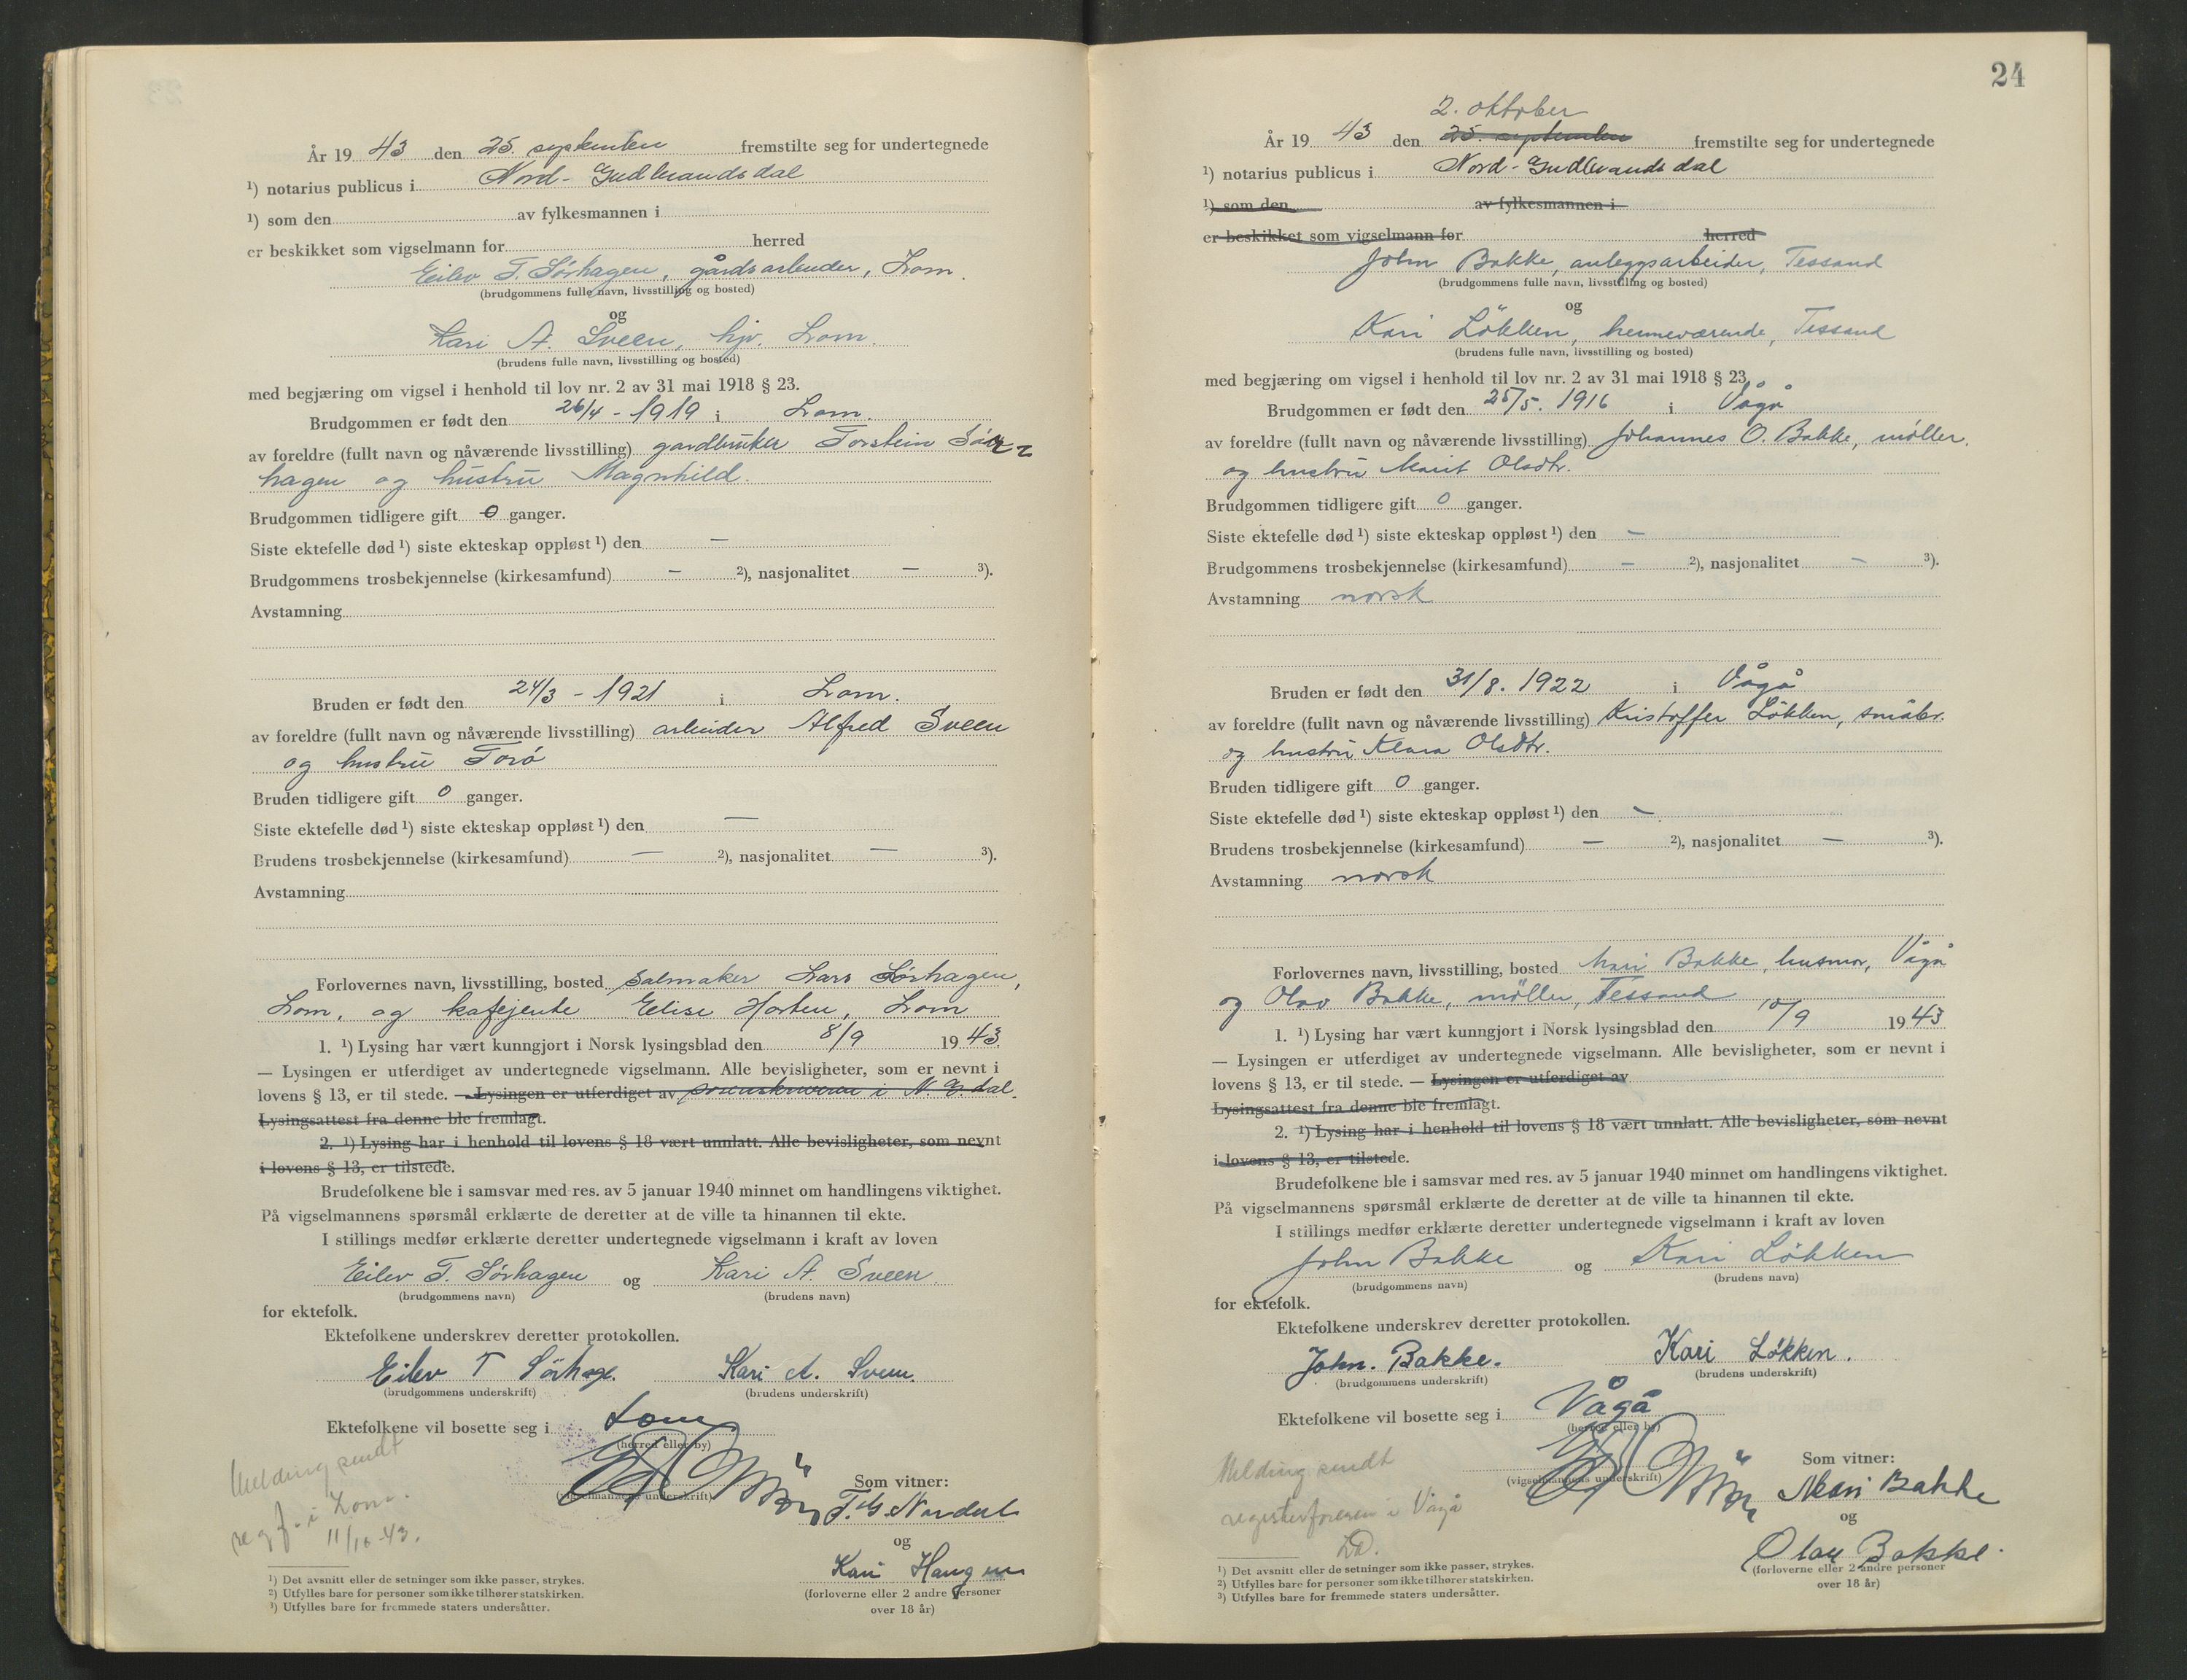 År 19 43 den 25. september fremstilte seg for undertegnede
¹) notarius publicus i Nord-Gudbrandsdal
¹) som den av fylkesmannen i
er beskikket som vigselmann for herred
Eilev T. Sørhagen, gårdsarbeider, Lom.
(brudgommens fulle navn, livsstilling og bosted)
og
Kari A. Sveen, hjv. Lom.
(brudens fulle navn, livsstilling og bosted)
med begjæring om vigsel i henhold til lov nr. 2 av 31 mai 1918 § 23.
Brudgommen er født den 26/4 - 1919 i Lom.
av foreldre (fullt navn og nåværende livsstilling) gardbruker Torstein Sør-
hagen og hustru Magnhild.
Brudgommen tidligere gift 0 ganger.
Siste ektefelle død ¹) siste ekteskap oppløst ¹) den —
Brudgommens trosbekjennelse (kirkesamfund) — ²), nasjonalitet — ³).
Avstamning
Bruden er født den 24/3 - 1921 i Lom.
av foreldre (fullt navn og nåværende livsstilling) arbeider Alfred Sveen
og hustru Toró
Bruden tidligere gift 0 ganger.
Siste ektefelle død ¹) siste ekteskap oppløst ¹) den —
Brudens trosbekjennelse (kirkesamfund) — ²), nasjonalitet — ³).
Avstamning
Forlovernes navn, livsstilling, bosted Salmaker Lars Sørhagen,
Lom, og kafejente Elise Horten, Lom
1. ¹) Lysing har vært kunngjort i Norsk lysingsblad den 8/9 19 43.
— Lysingen er utferdiget av undertegnede vigselmann. Alle bevisligheter, som er nevnt i
lovens § 13, er til stede. — Lysingen er utferdiget av sorenskriveren i N. G.dal.
Lysingsattest fra denne ble fremlagt.
2. ¹) Lysing har i henhold til lovens § 18 vært unnlatt. Alle bevisligheter, som nevnt
i lovens § 13, er tilstede.
Brudefolkene ble i samsvar med res. av 5 januar 1940 minnet om handlingens viktighet.
På vigselmannens spørsmål erklærte de deretter at de ville ta hinannen til ekte.
I stillings medfør erklærte deretter undertegnede vigselmann i kraft av loven
Eilev T. Sørhagen og Kari A. Sveen
(brudgommens navn) (brudens navn)
for ektefolk.
Ektefolkene underskrev deretter protokollen.
Eilev T Sørhage. Kari A. Sveen.
(brudgommens underskrift) (brudens underskrift)
Ektefolkene vil bosette seg i Lom
(herred eller by)
Melding sendt
reg.f. i Lom.
11/10-43.
(vigselmannens underskrift)
Som vitner:
T. G. Nordal
og
Kari Haugen
(forloverne eller 2 andre personer
over 18 år)
¹) Det avsnitt eller de setninger som ikke passer, strykes.
²) Utfylles bare for personer som ikke tilhører statskirken.
³) Utfylles bare for fremmede staters undersåtter.
24
2. oktober
År 19 43 den 25. september fremstilte seg for undertegnede
¹) notarius publicus i Nord-Gudbrandsdal
¹) som den av fylkesmannen i
er beskikket som vigselmann for herred
John Bakke, anleggsarbeider, Tessand
(brudgommens fulle navn, livsstilling og bosted)
og
Kari Løkken, hjemmeværende, Tessand
(brudens fulle navn, livsstilling og bosted)
med begjæring om vigsel i henhold til lov nr. 2 av 31 mai 1918 § 23.
Brudgommen er født den 25/5. 1916 i Vågå
av foreldre (fullt navn og nåværende livsstilling) Johannes O. Bakke, møller.
og hustru Marit Olsdtr.
Brudgommen tidligere gift 0 ganger.
Siste ektefelle død ¹) siste ekteskap oppløst ¹) den —
Brudgommens trosbekjennelse (kirkesamfund) — ²), nasjonalitet — ³).
Avstamning norsk
Bruden er født den 31/8. 1922 i Vågå
av foreldre (fullt navn og nåværende livsstilling) Kristoffer Løkken, småbr.
og hustru Klara Olsdtr.
Bruden tidligere gift 0 ganger.
Siste ektefelle død ¹) siste ekteskap oppløst ¹) den —
Brudens trosbekjennelse (kirkesamfund) — ²), nasjonalitet — ³).
Avstamning norsk
Forlovernes navn, livsstilling, bosted Mari Bakke, husmor, Vågå
og Olav Bakke, møller, Tessand
1. ¹) Lysing har vært kunngjort i Norsk lysingsblad den 10/9 19 43
— Lysingen er utferdiget av undertegnede vigselmann. Alle bevisligheter, som er nevnt i
lovens § 13, er til stede. — Lysingen er utferdiget av
Lysingsattest fra denne ble fremlagt.
2. ¹) Lysing har i henhold til lovens § 18 vært unnlatt. Alle bevisligheter, som nevnt
i lovens § 13, er tilstede.
Brudefolkene ble i samsvar med res. av 5 januar 1940 minnet om handlingens viktighet.
På vigselmannens spørsmål erklærte de deretter at de ville ta hinannen til ekte.
I stillings medfør erklærte deretter undertegnede vigselmann i kraft av loven
John Bakke og Kari Løkken
(brudgommens navn) (brudens navn)
for ektefolk.
Ektefolkene underskrev deretter protokollen.
John. Bakke. Kari Løkken.
(brudgommens underskrift) (brudens underskrift)
Ektefolkene vil bosette seg i Vågå
(herred eller by)
Melding sendt
registerføreren i Vågå
(vigselmannens underskrift)
Som vitner:
Mari Bakke
og
Olav Bakke.
(forloverne eller 2 andre personer
over 18 år)
¹) Det avsnitt eller de setninger som ikke passer, strykes.
²) Utfylles bare for personer som ikke tilhører statskirken.
³) Utfylles bare for fremmede staters undersåtter.